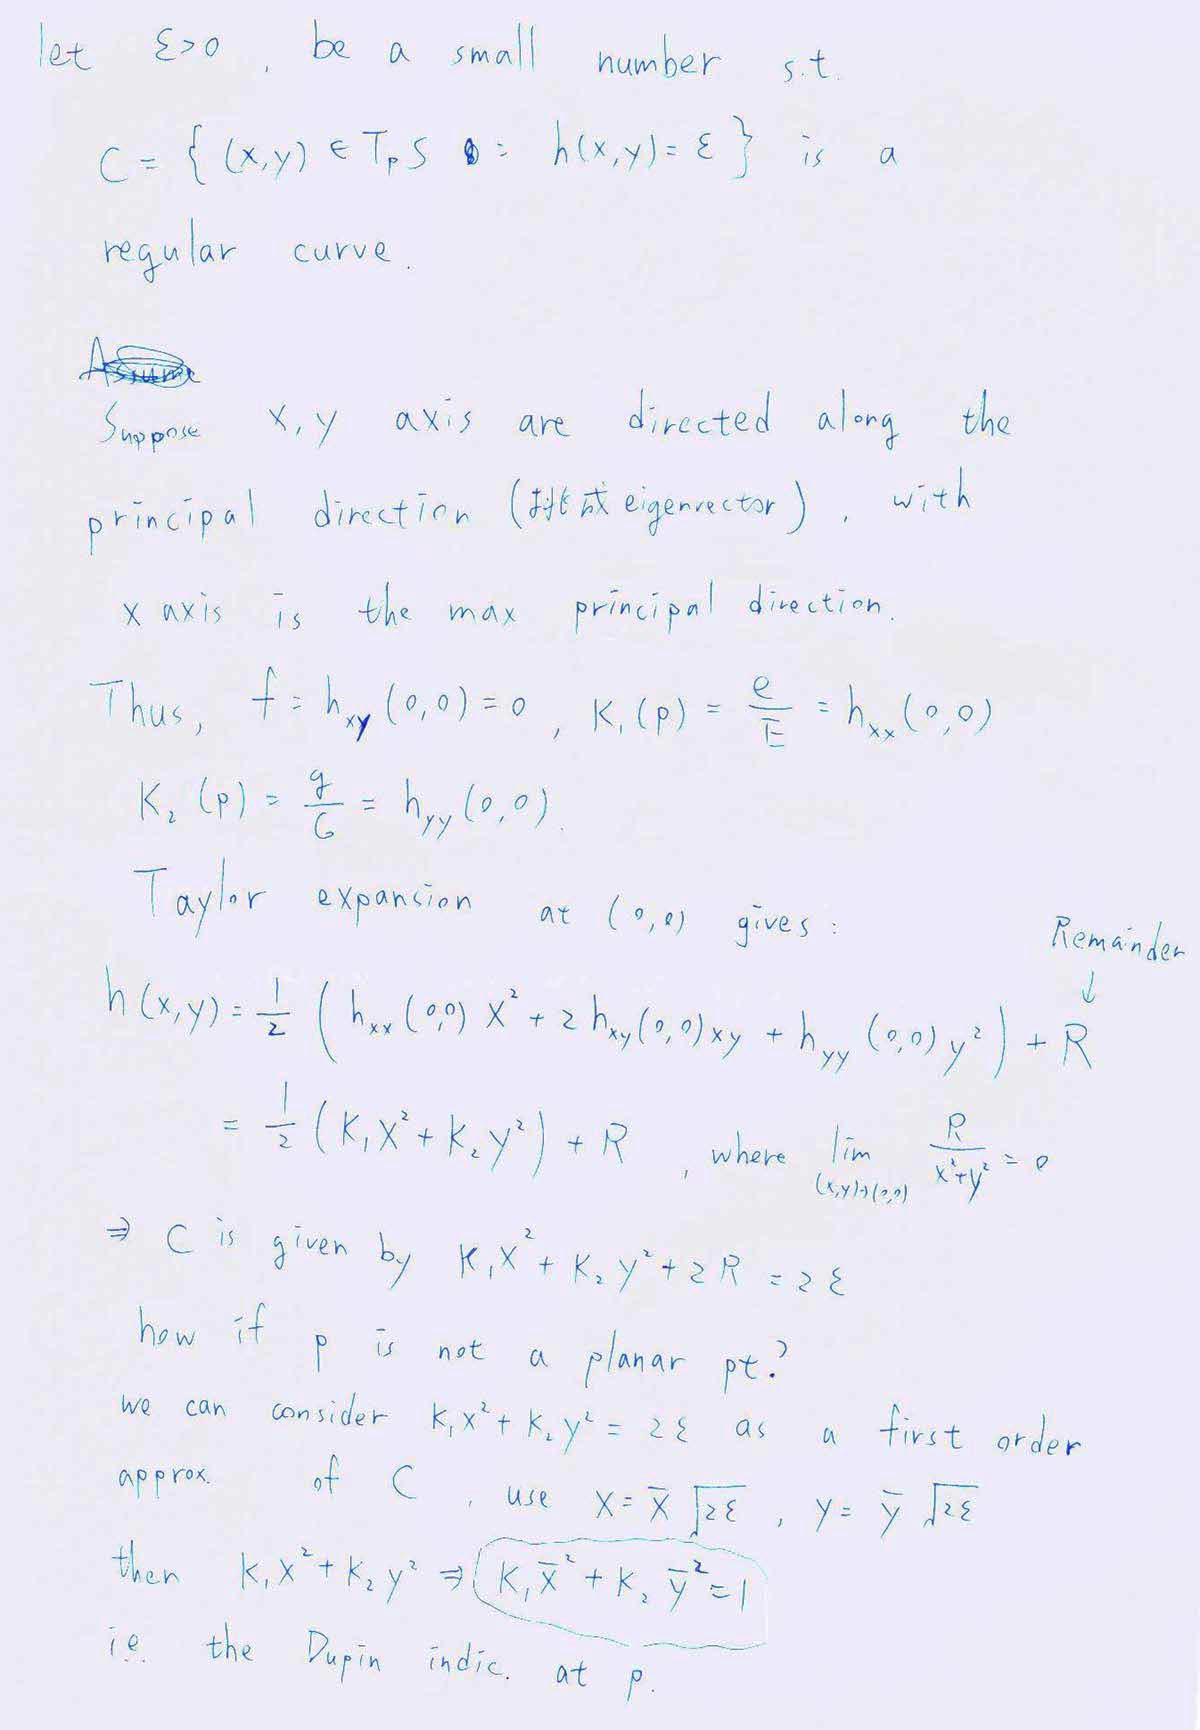 let ε>0, be a small number s.t.
C = { (x,y) ∈ TₚS : h(x,y) = ε } is a
regular curve.
Suppose x, y axis are directed along the
principal direction (挑成 eigenvector), with
x axis is the max principal direction.
Thus, f = h_xy (0,0) = 0, K₁(p) = e/E = h_xx (0,0)
K₂ (p) = g/G = h_yy (0,0).
Taylor expansion at (0,0) gives:
Remainder
↓
h(x,y) = 1/2 ( h_xx (0,0) x² + 2 h_xy (0,0) xy + h_yy (0,0) y² ) + R
= 1/2 (K₁x² + K₂y²) + R, where lim (x,y)→(0,0) R/(x²+y²) = 0
⇒ C is given by K₁x² + K₂y² + 2R = 2ε
how if p is not a planar pt.?
we can consider K₁x² + K₂y² = 2ε as a first order
approx. of C, use x = x̄ √2ε, y = ȳ √2ε
then K₁x² + K₂y² ⇒ K₁x̄² + K₂ȳ² = 1
i.e. the Dupin indic. at p.